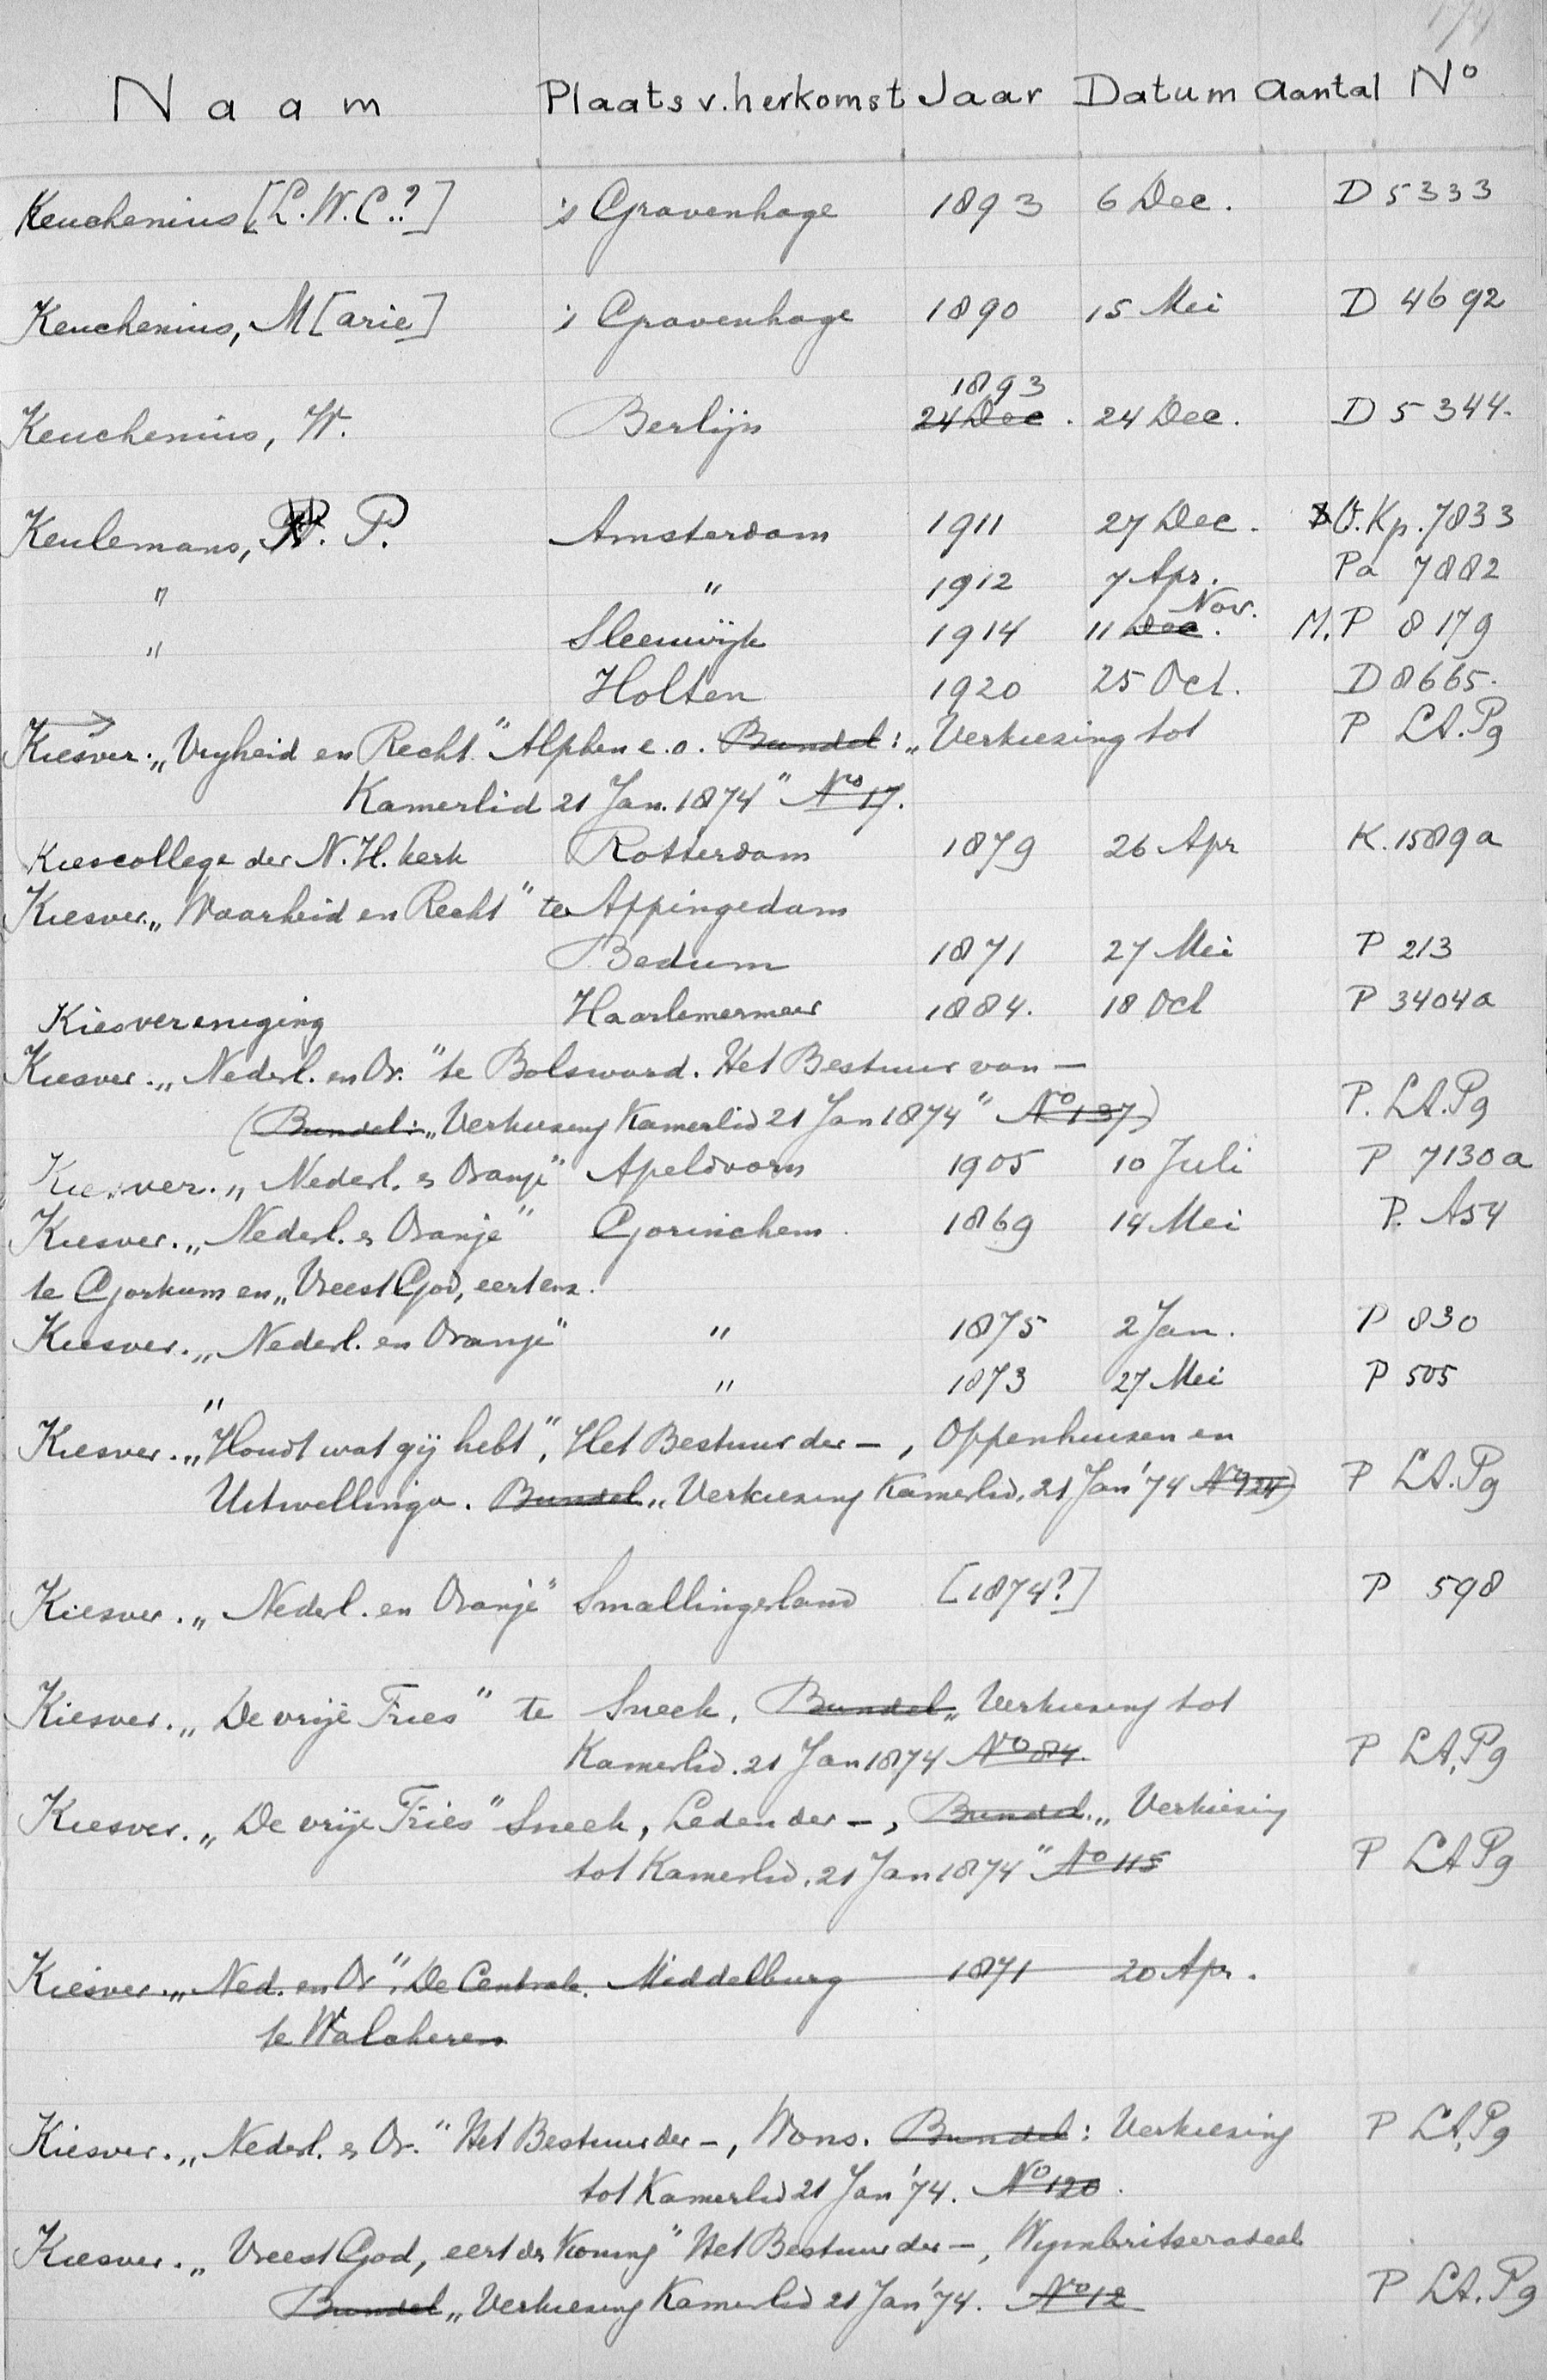 Naam Plaats v. herkomst Jaar Datum Aantal No
Keuchenius [L.W.C.?] 's Gravenhage 1893 6 Dec. D 5333
Keuchenius, M[arie] 's Gravenhage 1890 15 Mei D 4692
1893
Keuchenius, W. Berlijn 24 Dec. 24 Dec. D 5344.
Keulemans, P. Amsterdam 1911 27 Dec. V.Kp. 7833
" " 1912 7 Apr. Pa 7882
Nov.
" Sleeuwijk 1914 11 Dec. M.P 8179
Holten 1920 25 Oct. D 8665.
Kiesver. „Vrijheid en Recht" Alphen e.o. Bundel: „Verkiezing tot P LA.Pg
Kamerlid 21 Jan. 1874" No 17.
Kiescollege der N.H. kerk Rotterdam 1879 26 Apr K. 1589a
Kiesver. „Waarheid en Recht" te Appingedam
Bedum 1871 27 Mei P 213
Kiesvereniging Haarlemermeer 1884. 18 Oct P 3404a
Kiesver. „Nederl. en Or." te Bolsward. Het Bestuur van —
(Bundel: „Verkiezing Kamerlid 21 Jan 1874" No 137) P. LA.Pg
Kiesver. „Nederl. en Oranje" Apeldoorn 1905 10 Juli P 7130a
Kiesver. „Nederl. en Oranje" Gorinchem 1869 14 Mei P. A54
te Gorkum en „Vreest God, eert enz.
Kiesver. „Nederl. en Oranje" " 1875 2 Jan. P 830
" " 1873 27 Mei P 505
Kiesver. „Houdt wat gij hebt", Het Bestuur der —, Oppenhuizen en
Uitwellinga. Bundel „Verkiezing Kamerlid, 21 Jan '74 No 124) P LA.Pg
Kiesver. „Nederl. en Oranje" Smallingerland [1874?] P 598
Kiesver. „De vrije Fries" te Sneek. Bundel „Verkiezing tot
Kamerlid. 21 Jan 1874 No 84. P LA.Pg
Kiesver. „De vrije Fries" Sneek, Leden der —, Bundel. „Verkiezing
tot Kamerlid. 21 Jan 1874" No 115 P LA Pg
Kiesver. „Ned. en Or". De Centrale. Middelburg 1871 20 Apr.
te Walcheren
Kiesver. „Nederl. en Or." Het Bestuur der —, Wons. Bundel: Verkiezing P LA.Pg
tot Kamerlid 21 Jan '74. No 120.
Kiesver. „Vreest God, eert den Koning" Het Bestuur der —, Wymbritseradeel
Bundel „Verkiezing Kamerlid 21 Jan '74. No 12 P LA.Pg